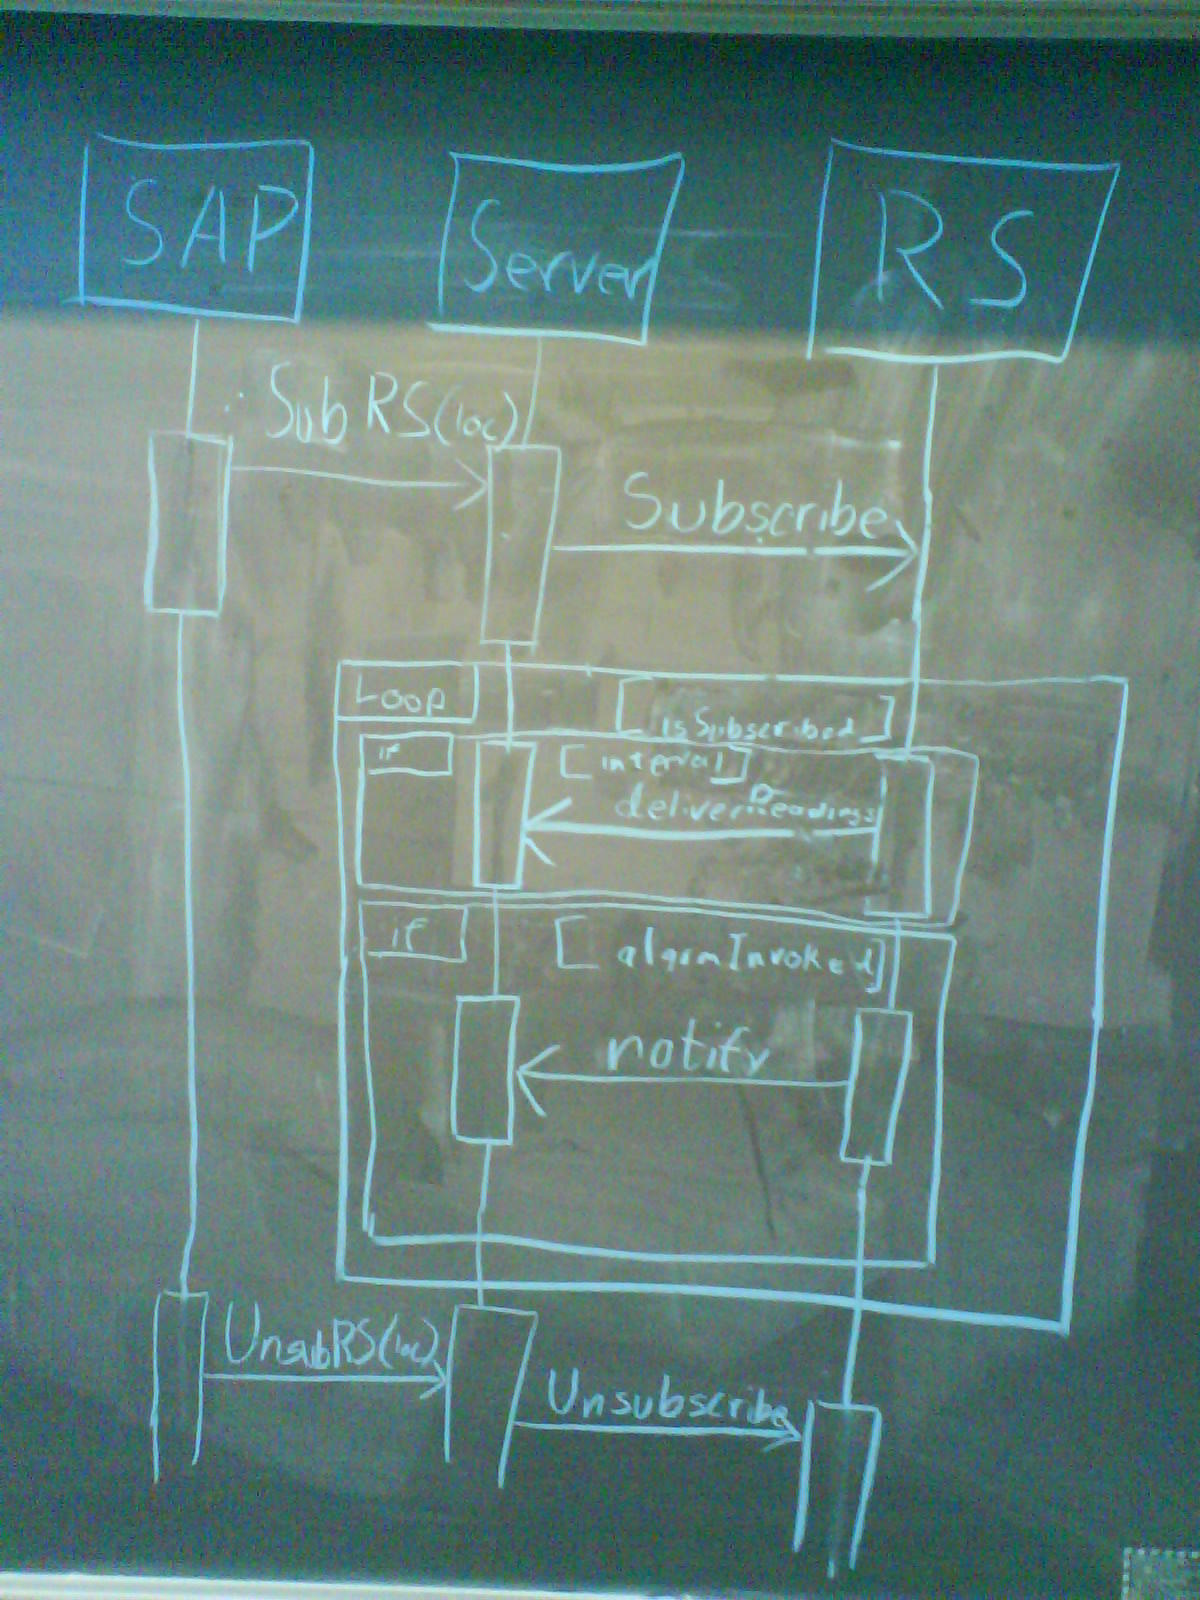 SAP
Server
RS
SubRS(loc)
Subscribe
Loop
[isSubscribed]
if
[interval]
deliverReadings
if
[alarmInvoked]
notify
UnsubRS(loc)
Unsubscribe